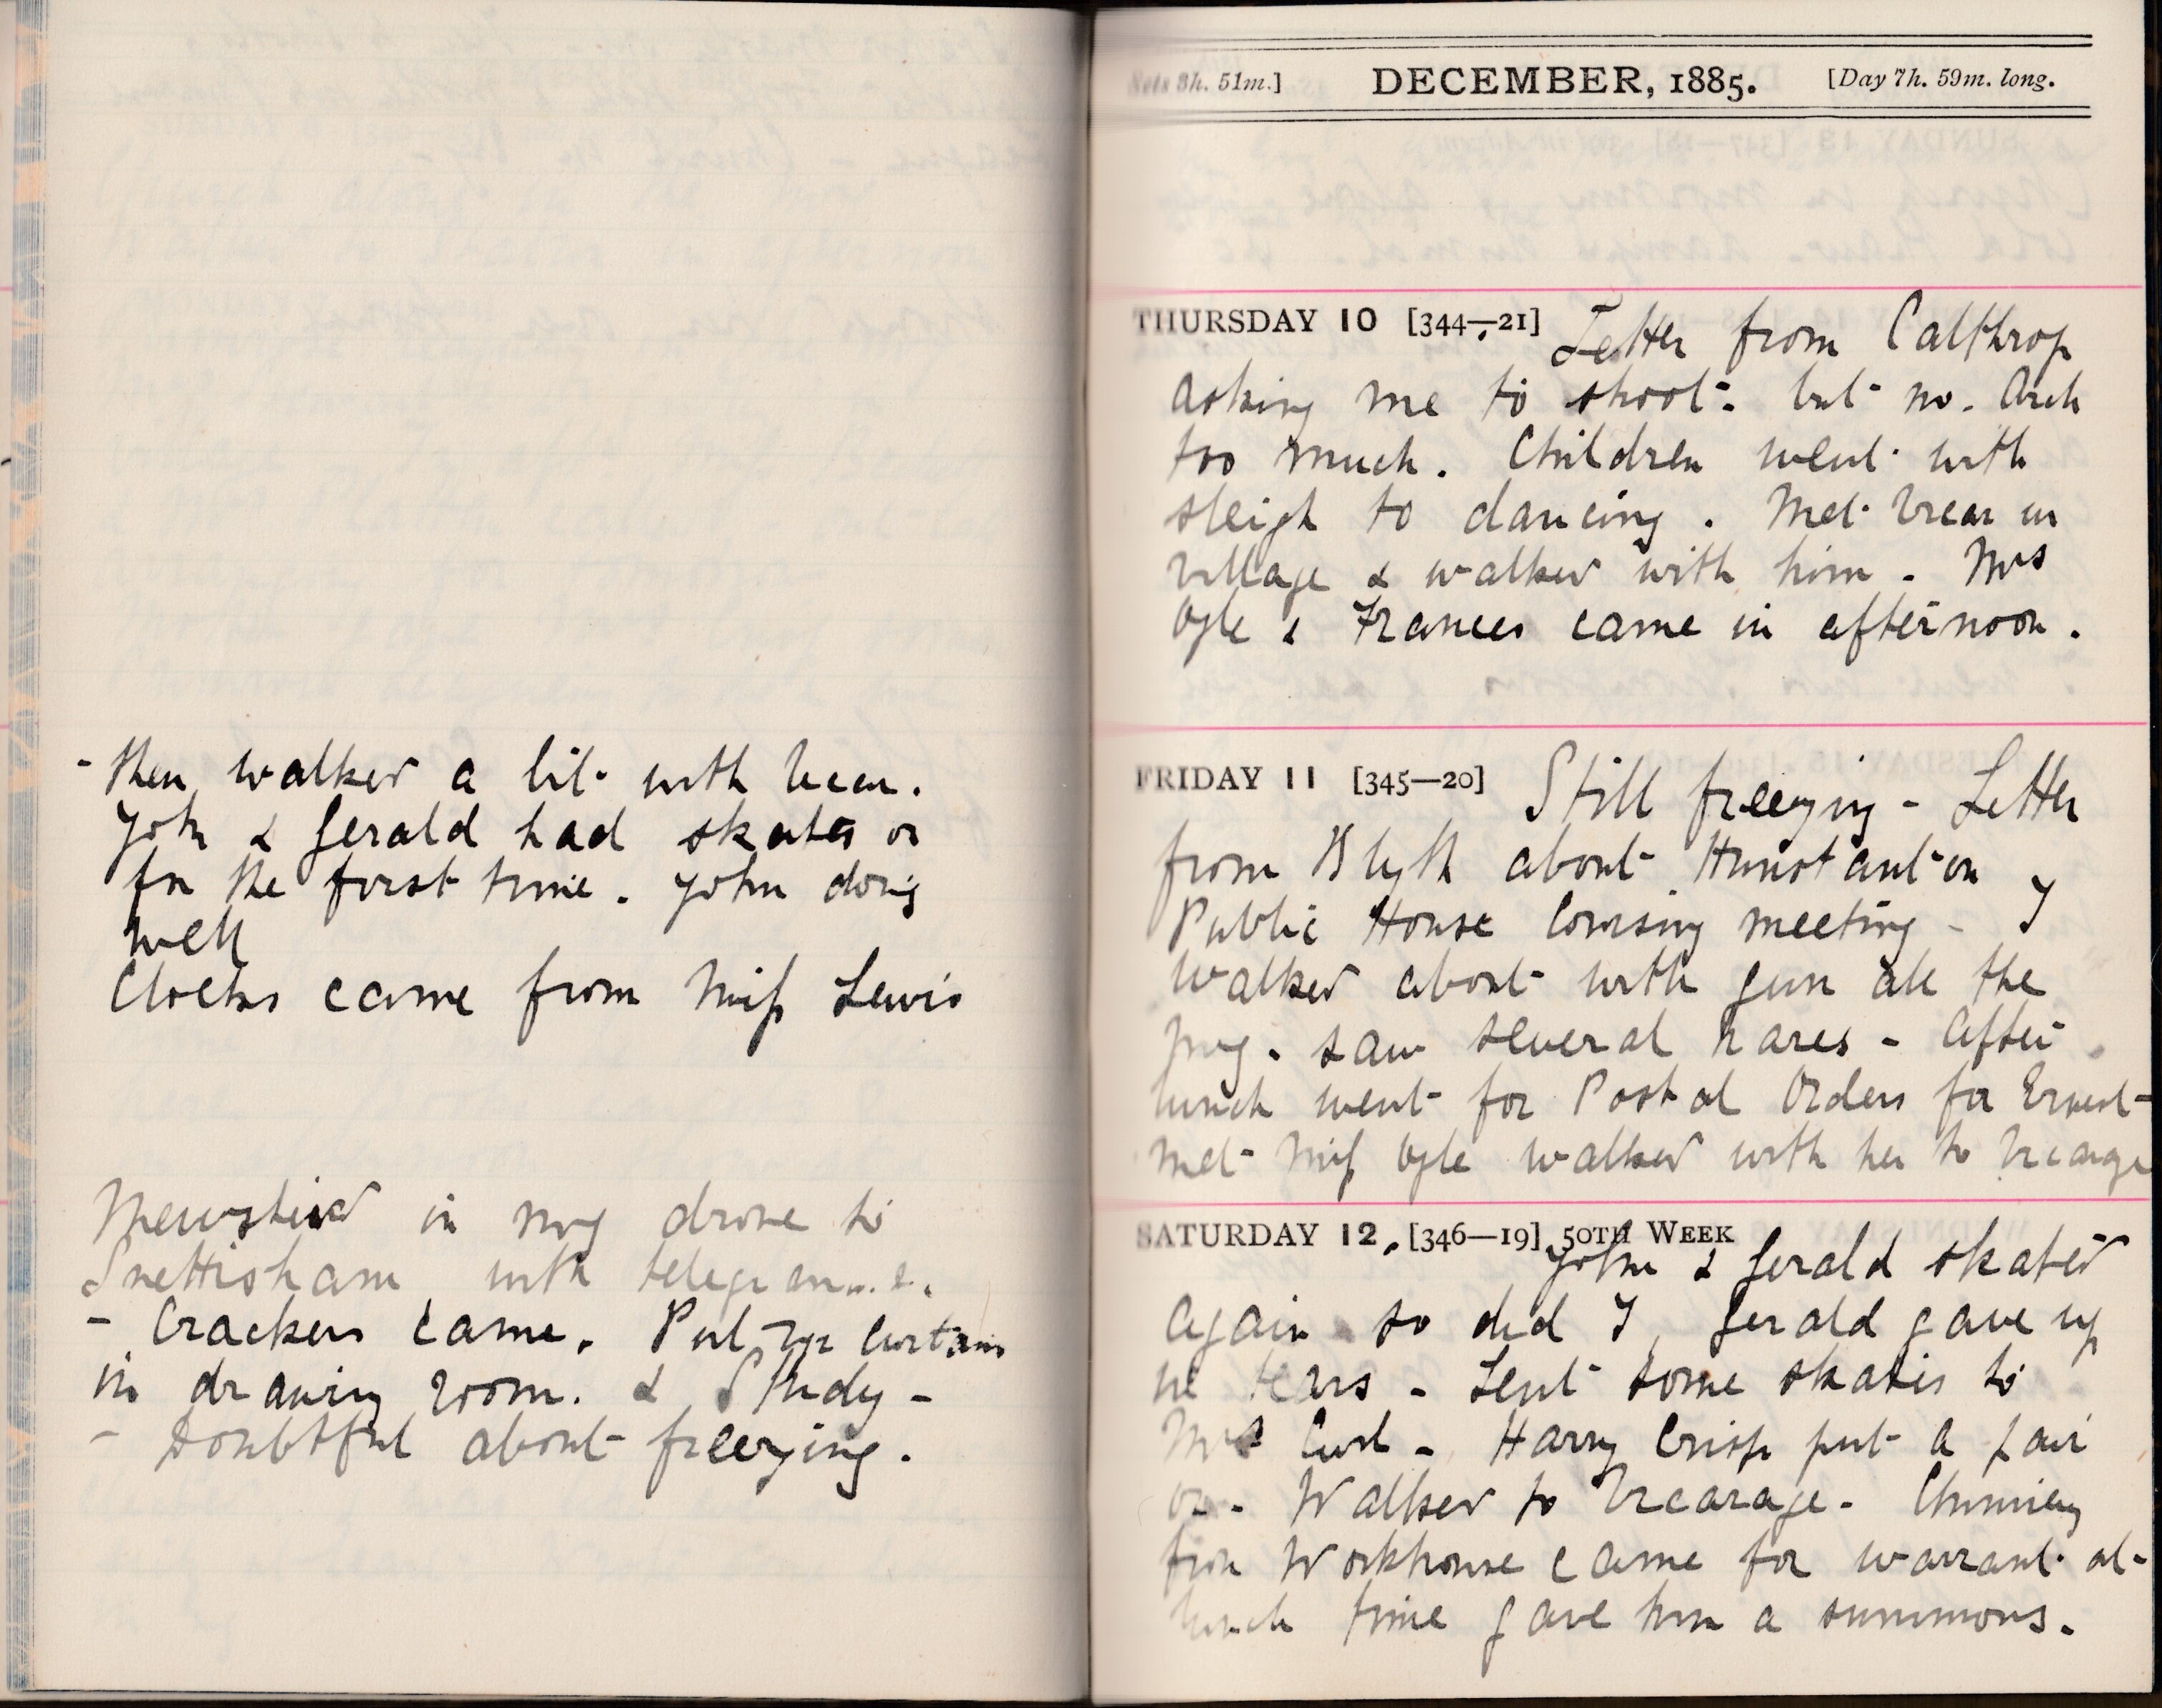 - then walked a bit with Vicar.
John & Gerald had skates on
for the first time. John doing
well
Clocks came from Miss Lewis
in mg drove to
Snettisham with
- Crackers came. Put up Curtains
in drawing room. & Study -
- Doubtful about freezing.
Sets 3h. 51m.] DECEMBER, 1885. [Day 7h. 59m. long.
THURSDAY 10 [344—21] Letter from Calthrop
asking me to shoot. but no.
too much. Children went with
sleigh to dancing. Met Vicar in
village & walked with him. Mrs
Ogle & Frances came in afternoon.
FRIDAY 11 [345—20] Still freezing - Letter
from Blyth about Hunstanton
Public House Coursing meeting - I
walked about with gun all the
mg. saw several hares - after
lunch went for Postal Orders for Ernest -
met Miss Ogle walked with her to Vicarage
SATURDAY 12. [346—19] 50TH WEEK
John & Gerald skated
again so did I, Gerald gave up
in tears - Lent some skates to
Mrs Curl - Harry Crisp put a pair
on. Walked to Vicarage -
from Workhouse came for warrant at
lunch time gave him a summons.